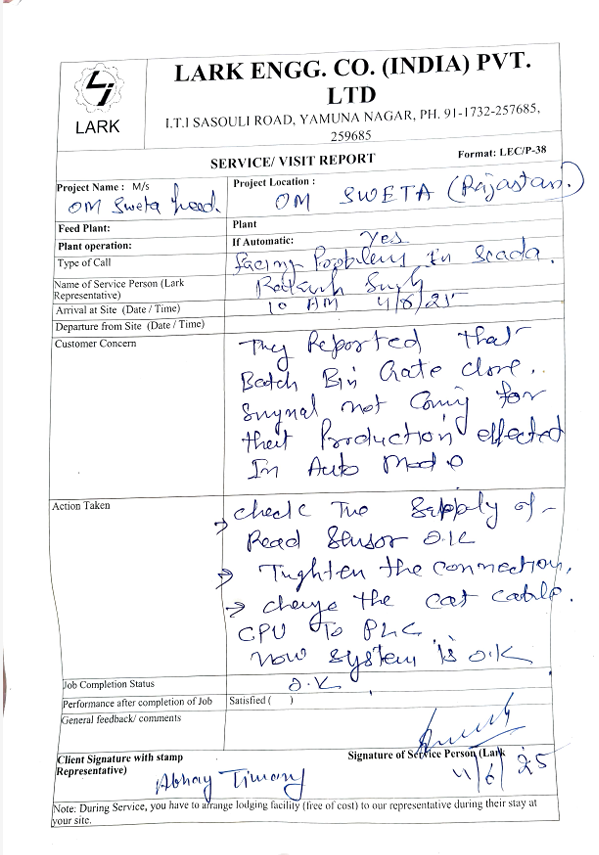 LARK ENGG. CO. (INDIA) PVT.
LTD
LARK
I.T.I SASOULI ROAD, YAMUNA NAGAR, PH. 91-1732-257685,
259685
SERVICE/ VISIT REPORT Format: LEC/P-38
Project Name : M/s Project Location :
OM Sweta feed. OM SWETA (Rajastan.)
Feed Plant: Plant
Plant operation: If Automatic: Yes
Type of Call facing Problem in Scada.
Name of Service Person (Lark
Representative) Singh
Arrival at Site (Date / Time) 10 AM 4/6/25
Departure from Site (Date / Time)
Customer Concern They Reported that
Batch Bin Gate close.
not coming for
their Production effected
In Auto Mode
Action Taken → check The Supply of
Read Sensor O.K
→ Tughten the connection,
→ the cat cable.
CPU To PLC.
Now system is O.K
Job Completion Status O.K
Performance after completion of Job Satisfied ( )
General feedback/ comments
Client Signature with stamp Signature of Service Person (Lark
Representative) 4/6/25
Abhay
Note: During Service, you have to arrange lodging facility (free of cost) to our representative during their stay at
your site.